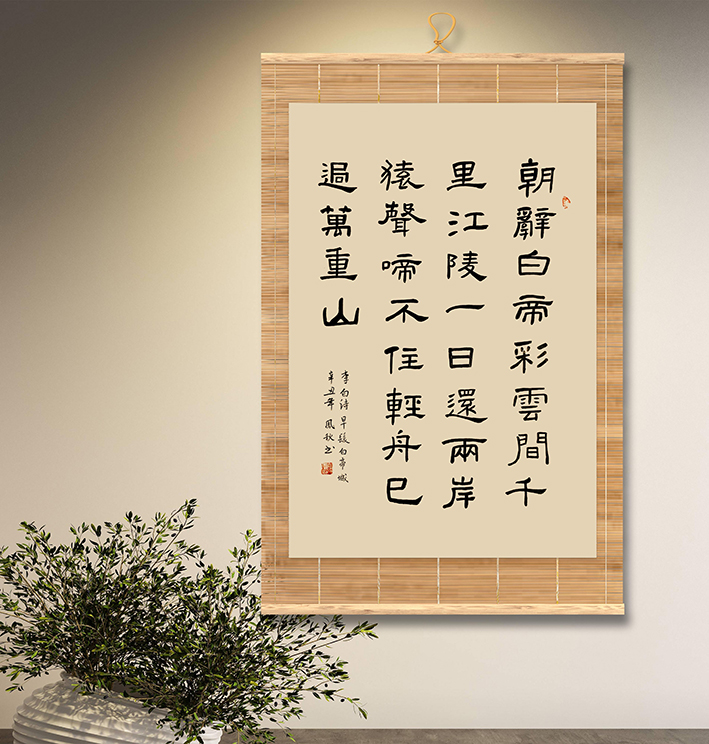 朝辭白帝彩雲間千
里江陵一日還兩岸
猿聲啼不住輕舟已
過萬重山
李白诗早發白帝城
辛丑年 鳳秋书